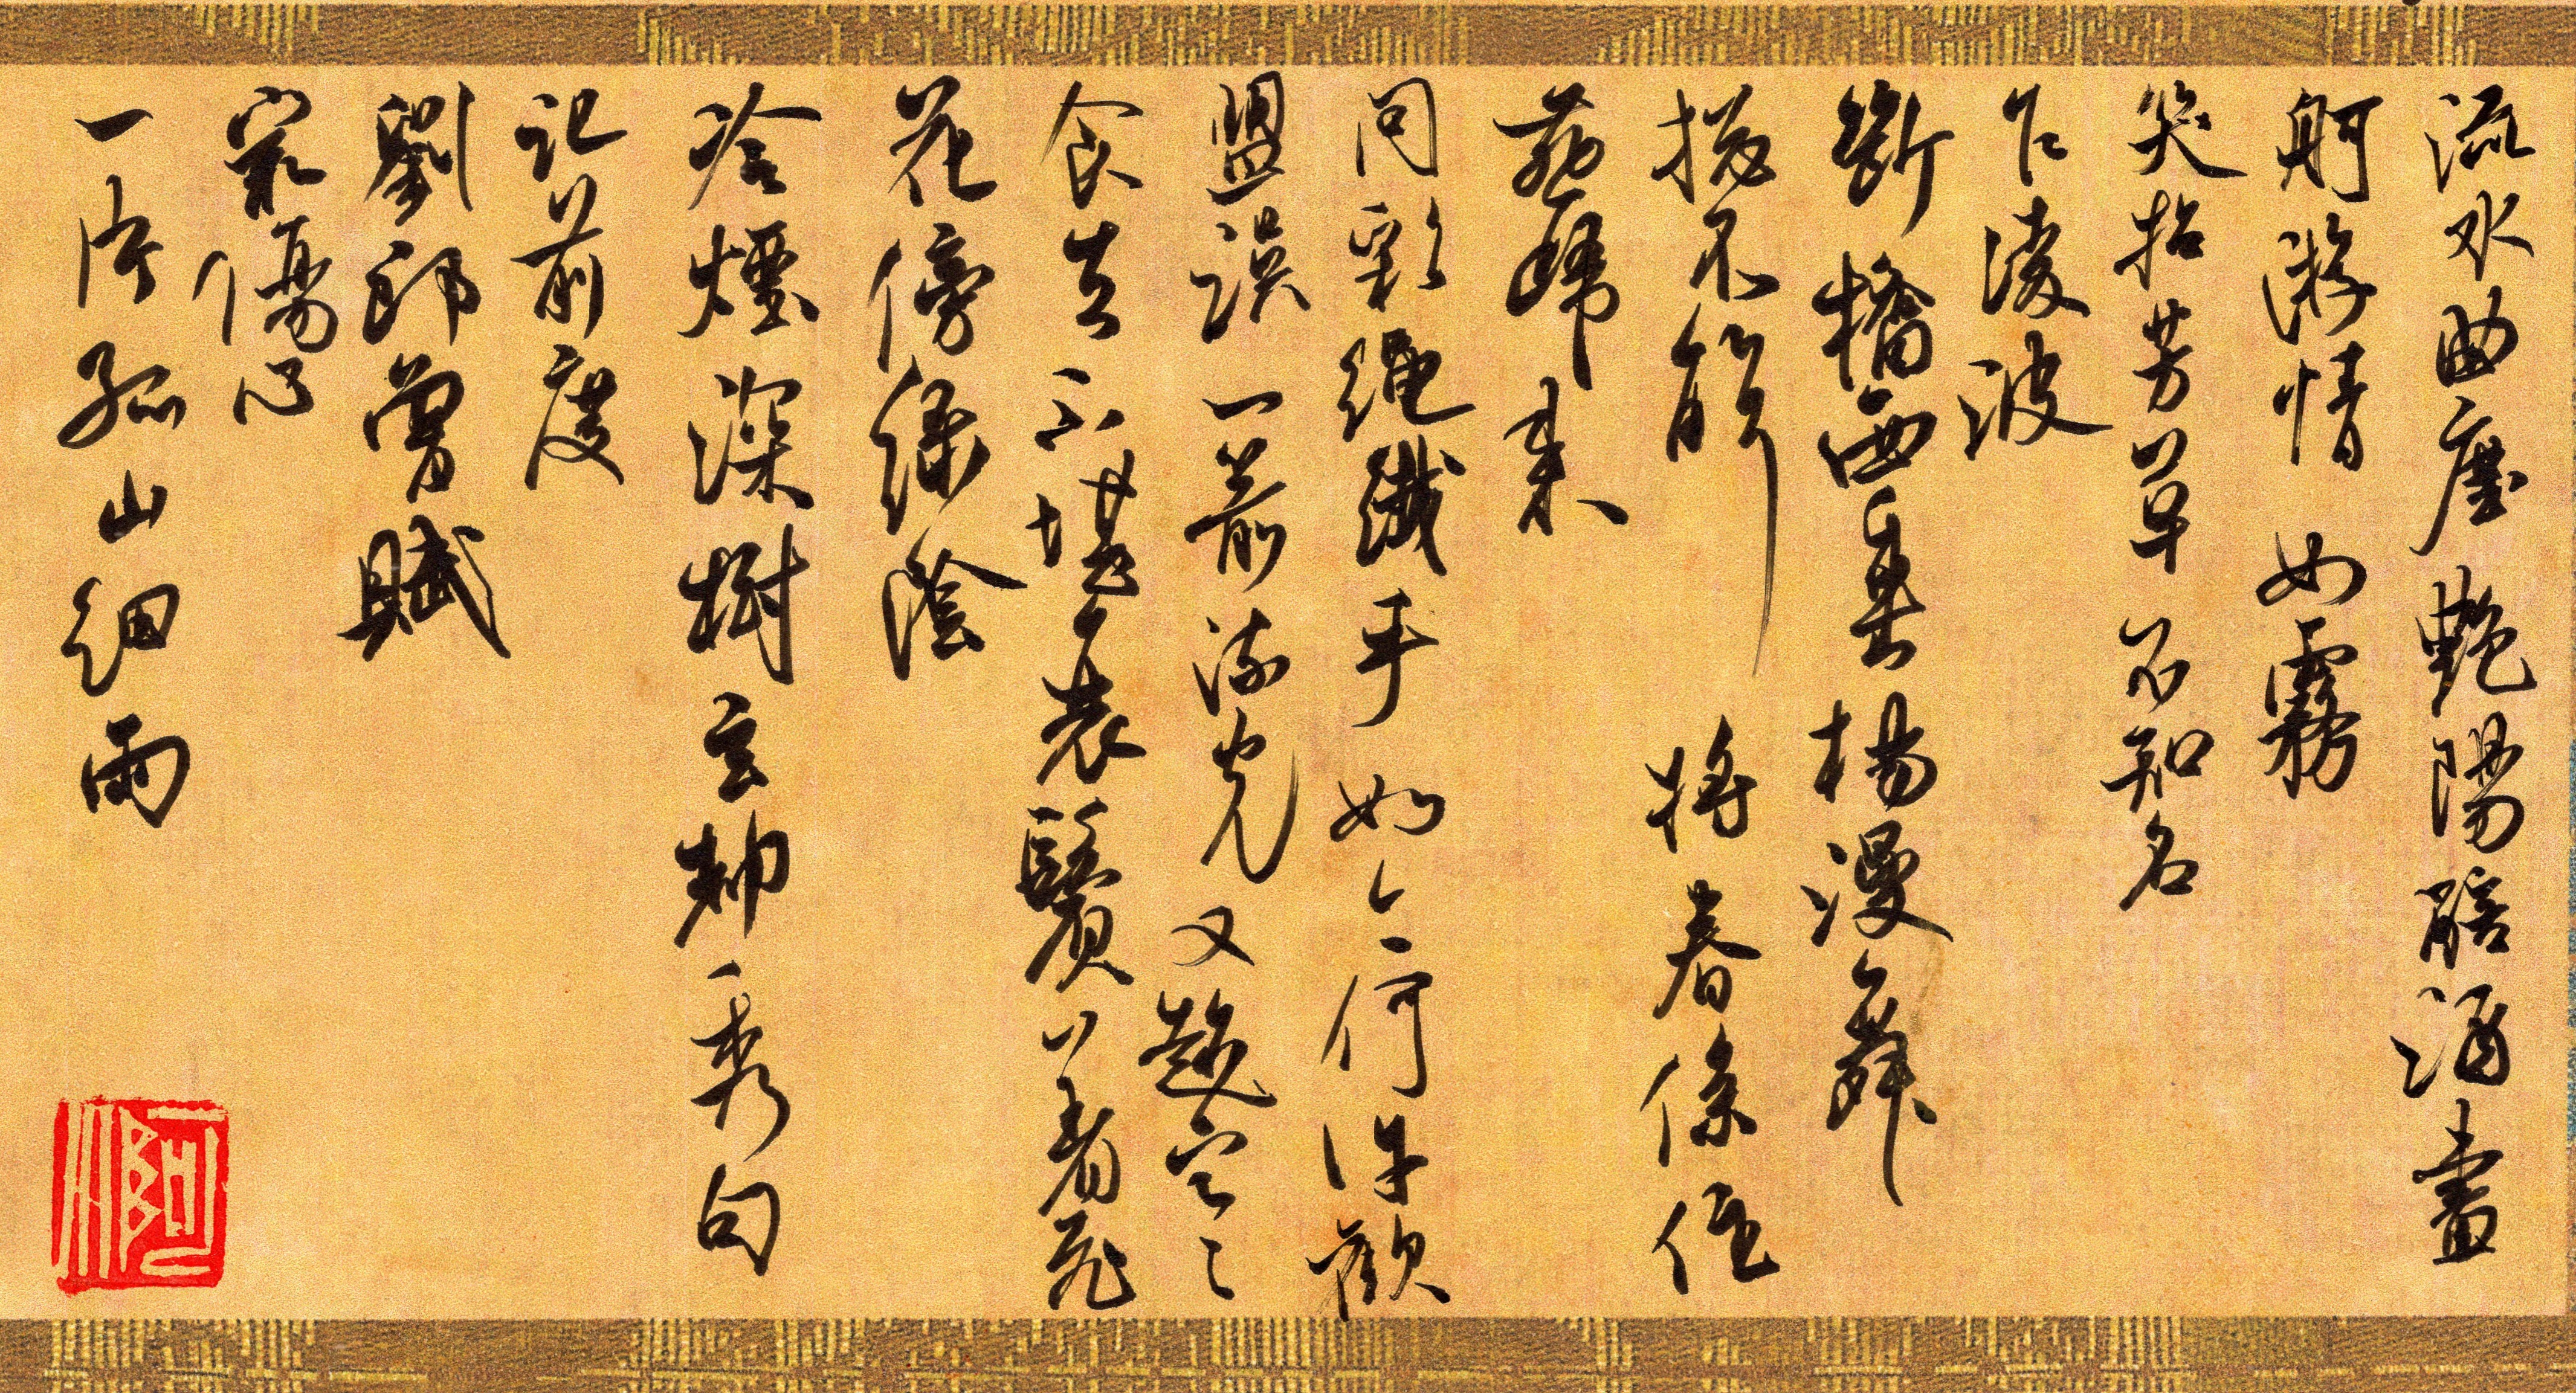 流水曲塵艷陽醅酒畫
舸游情如霧
笑拈芳草不知名
乍淩波
斷橋西垂楊漫舞
摠不解將春係住
燕歸來
問彩繩纖手如今何許歡
盟誤一箭流光又趁寒
食去不堪衰鬢著飛
花傍綠陰
冷煙深樹玄都秀句
記前度
劉郎曾賦
最傷心
一片孤山細雨